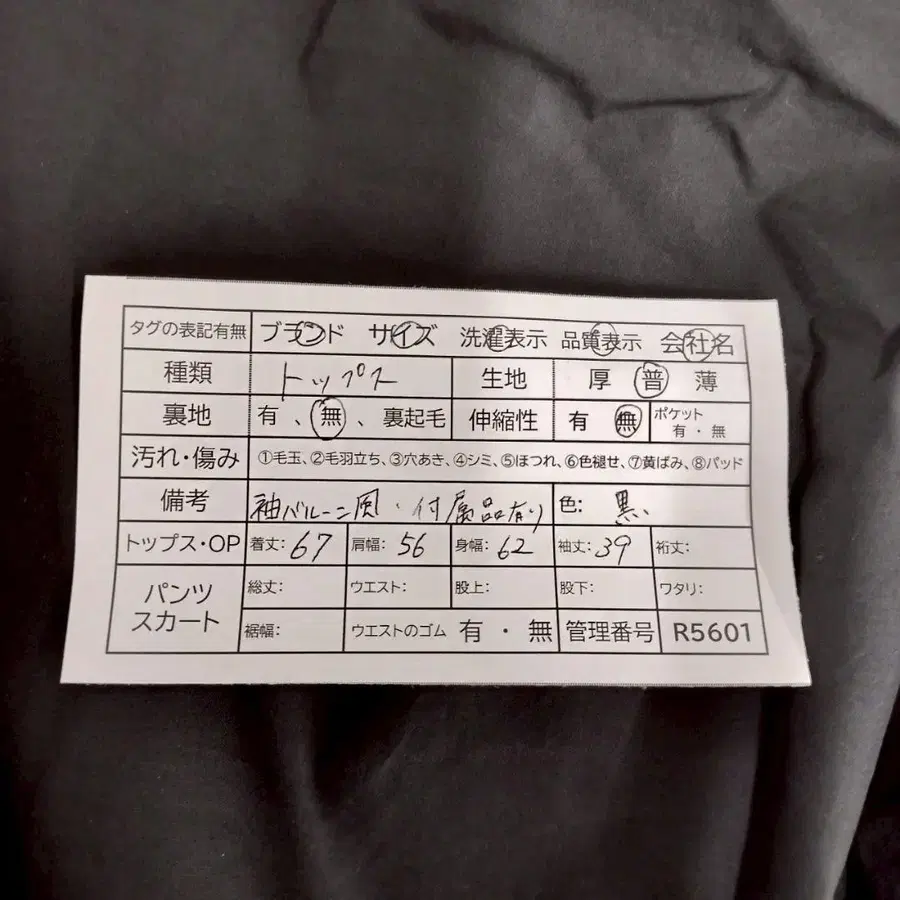 タグの表記有無 ブランド サイズ 洗濯表示 品質表示 会社名
種類 トップス 生地 厚 普 薄
裏地 有 、 無 、 裏起毛 伸縮性 有 無 ポケット 有 ・ 無
汚れ・傷み ①毛玉、②毛羽立ち、③穴あき、④シミ、⑤ほつれ、⑥色褪せ、⑦黄ばみ、⑧パッド
備考 袖バルーン風・付属品有り 色: 黒
トップス・OP 着丈: 67 肩幅: 56 身幅: 62 袖丈: 39 裄丈:
パンツ スカート 総丈: ウエスト: 股上: 股下: ワタリ:
裾幅: ウエストのゴム 有 ・ 無 管理番号 R5601